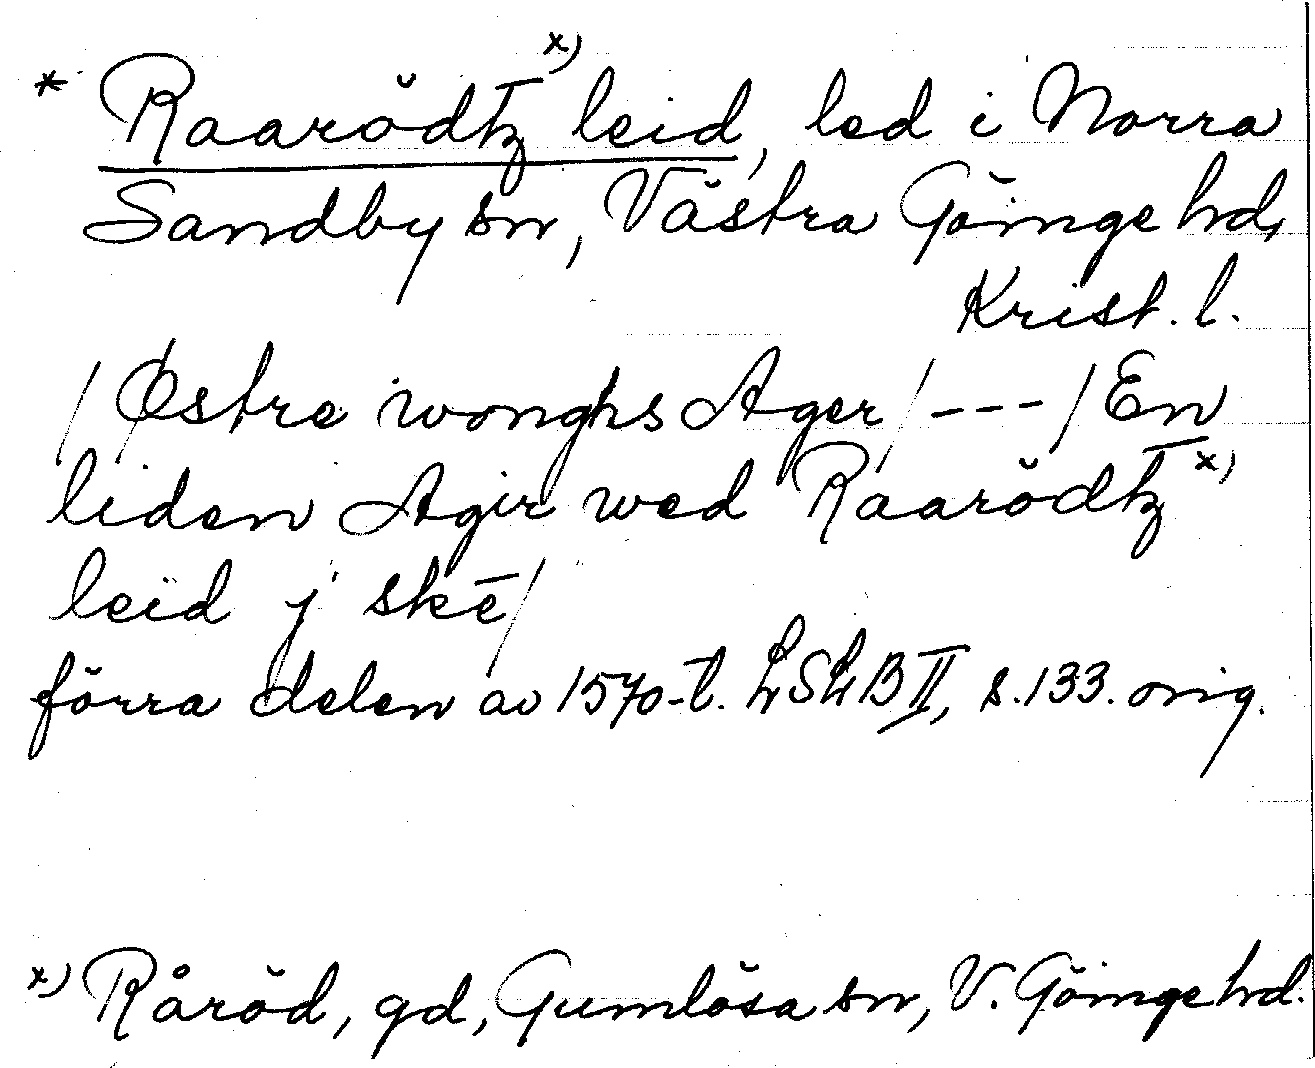 * Raarödtz x) leid, led i Norra
Sandby sn, Västra Göinge hd,
Krist. l.
/Østre wonghs Ager/---/En
liden Agir wed Raarödtz x)
leid j skē/
förra delen av 1570-t. LSLB II, s.133. orig.
x) Råröd, gd, Gumlösa sn, V. Göinge hd.